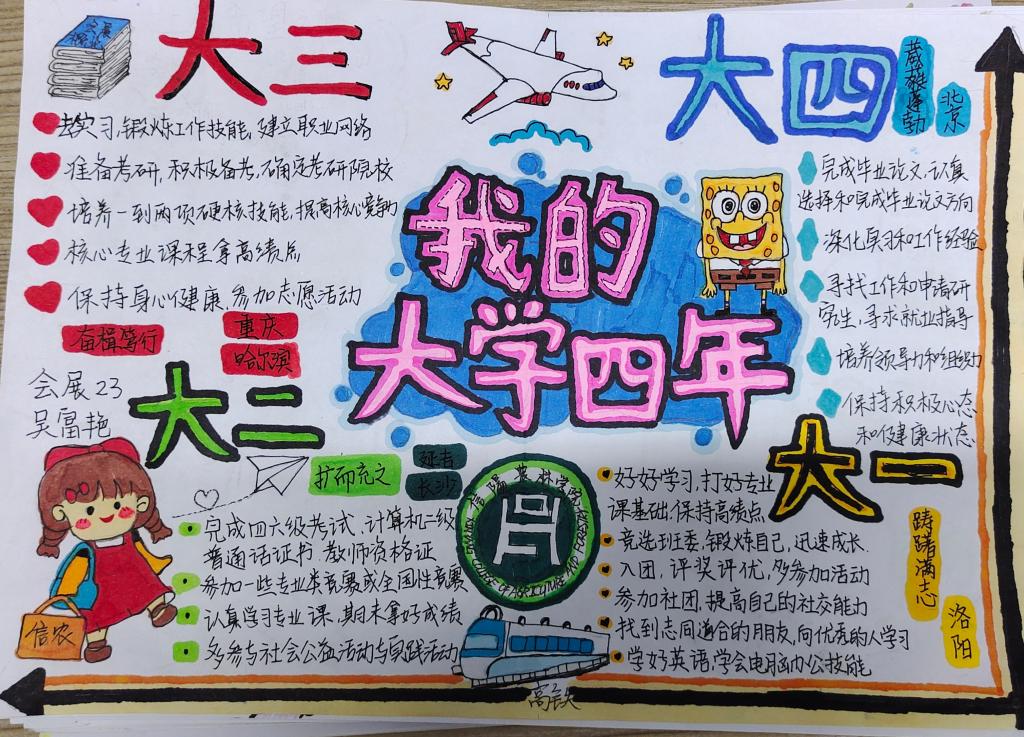 大三
去实习,锻炼工作技能,建立职业网络
准备考研,积极备考,确定考研院校
培养一到两项硬核技能,提高核心竞争力
核心专业课程拿高绩点
保持身心健康,参加志愿活动
奋楫笃行
重庆
哈尔滨
大四
蓬勃
北京
完成毕业论文,认真
选择和完成毕业论文方向
深化实习和工作经验
寻找工作和申请研
究生,寻求就业指导
培养领导力和组织力
保持积极心态
和健康状态
我的
大学四年
会展23
吴富艳
大二
扩而充之
延吉
长沙
完成四六级考试、计算机二级
普通话证书、教师资格证
参加一些专业类竞赛或全国性竞赛
认真学习专业课,期末拿好成绩
多参与社会公益活动与实践活动
信农
大一
好好学习,打好专业
课基础,保持高绩点
竞选班委,锻炼自己,迅速成长.
入团,评奖评优,多参加活动
参加社团,提高自己的社交能力
找到志同道合的朋友,向优秀的人学习
学好英语,学会电脑办公技能
踌躇满志
洛阳
高铁